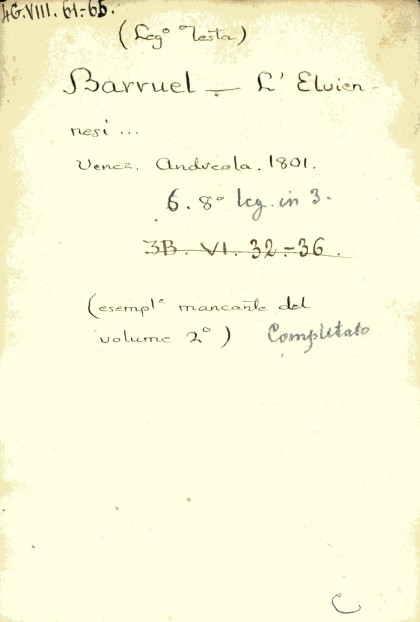 4G.VIII. 61-65.
(Leg° Testa)
Barruel — L' Elvien-
nesi ...
Venez. Andreola. 1801.
6. 8° leg. in 3.
3B. VI. 32-36.
(esempl^e mancante del
volume 2°) Completato